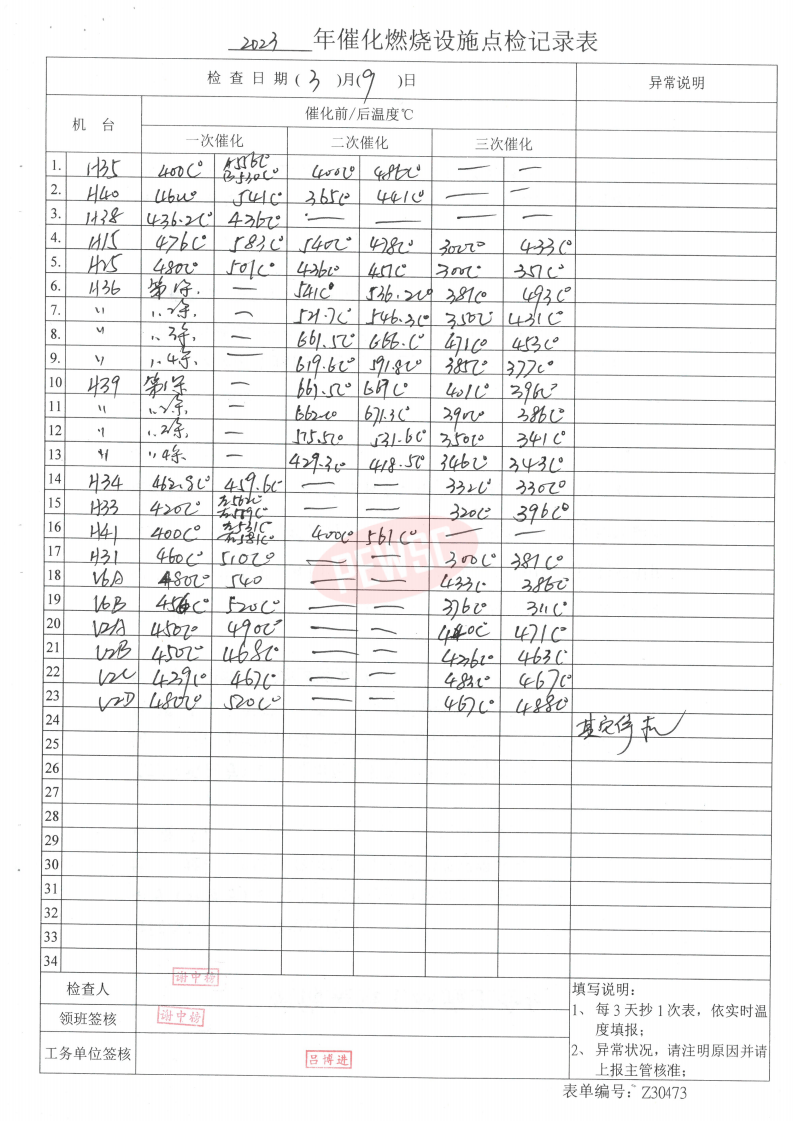 2023 年催化燃烧设施点检记录表
检查日期(3)月(9)日 异常说明
机台 催化前/后温度℃
一次催化 二次催化 三次催化
1. H35 400C° A556C° B530C° 400C° 486C° — —
2. H40 460C° 541C° 365C° 441C° — —
3. H38 436.2C° 426C° — — — —
4. H15 476C° 583C° 540C° 478C° 300C° 433C°
5. H25 480C° 501C° 436C° 451C° 300C° 351C°
6. H36 第1条. — 541C° 536.2C° 381C° 493C°
7. 〃 〃2条. — 521.7C° 546.3C° 350C° 431C°
8. 〃 〃3条. — 661.5C° 666.C° 471C° 453C°
9. 〃 〃4条. — 619.6C° 591.8C° 385C° 377C°
10 H39 第1条 — 661.5C° 669C° 401C° 396C°
11 〃 〃2条. — 662C° 671.3C° 390C° 386C°
12 〃 〃2条. — 575.5C° 531.6C° 350C° 341C°
13 〃 〃4条 — 429.3C° 418.5C° 346C° 343C°
14 H34 462.8C° 459.6C° — — 332C° 330C°
15 H33 420C° 左562C° 右589C° 320C° 396C°
16 H41 400C° 左531C° 右581C° 400C° 561C° — —
17 H31 460C° 510C° — — 300C° 381C°
18 V6A 480C° 540 — — 433C° 386C°
19 V6B 456C° 520C° — — 376C° 311C°
20 V2A 450C° 490C° — — 440C° 471C°
21 V2B 450C° 468C° — — 426C° 463C°
22 V2C 429C° 467C° — — 483C° 467C°
23 V2D 480C° 520C° — — 467C° 488C°
24 其它停机
25
26
27
28
29
30
31
32
33
34
PEWSC
检查人 谢中榜
领班签核 谢中榜
工务单位签核 吕博进
填写说明：
1、每3天抄1次表，依实时温
度填报；
2、异常状况，请注明原因并请
上报主管核准；
表单编号：Z30473